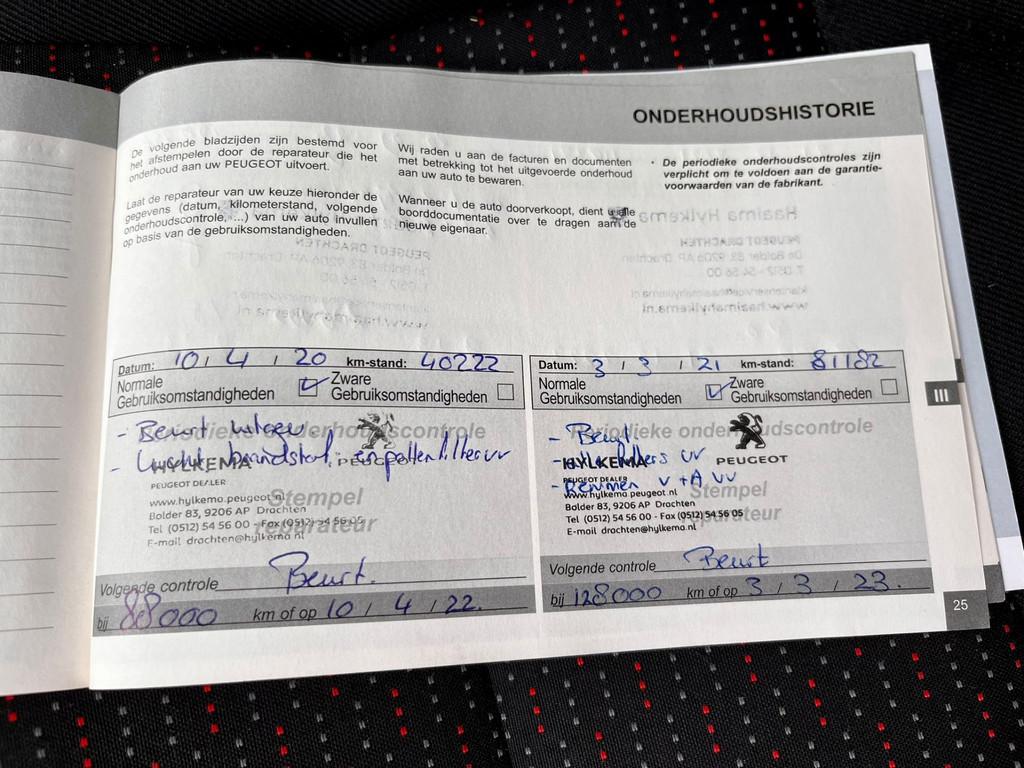 ONDERHOUDSHISTORIE
De volgende bladzijden zijn bestemd voor
het afstempelen door de reparateur die het
onderhoud aan uw PEUGEOT uitvoert.
Laat de reparateur van uw keuze hieronder de
gegevens (datum, kilometerstand, volgende
onderhoudscontrole, ...) van uw auto invullen
op basis van de gebruiksomstandigheden.
Wij raden u aan de facturen en documenten
met betrekking tot het uitgevoerde onderhoud
aan uw auto te bewaren.
Wanneer u de auto doorverkoopt, dient u alle
boorddocumentatie over te dragen aan de
nieuwe eigenaar.
• De periodieke onderhoudscontroles zijn
verplicht om te voldoen aan de garantie-
voorwaarden van de fabrikant.
Datum: 10 / 4 / 20 km-stand: 40222
Normale Gebruiksomstandigheden Zware Gebruiksomstandigheden
Periodieke onderhoudscontrole
- Beurt
- brandstof en pollenfilter vv
HYLKEMA PEUGEOT
PEUGEOT DEALER
www.hylkema.peugeot.nl
Stempel
Bolder 83, 9206 AP Drachten
Tel (0512) 54 56 00 - Fax (0512) 54 56 05
reparateur
E-mail drachten@hylkema.nl
Volgende controle Beurt.
bij 88000 km of op 10 / 4 / 22.
Datum: 3 / 3 / 21 km-stand: 81182
Normale Gebruiksomstandigheden Zware Gebruiksomstandigheden
Periodieke onderhoudscontrole
- Beurt
- filters vv
HYLKEMA PEUGEOT
PEUGEOT DEALER
- Remmen V + A vv
www.hylkema.peugeot.nl
Stempel
Bolder 83, 9206 AP Drachten
Tel (0512) 54 56 00 - Fax (0512) 54 56 05
reparateur
E-mail drachten@hylkema.nl
Volgende controle Beurt
bij 128000 km of op 3 / 3 / 23.
III
25